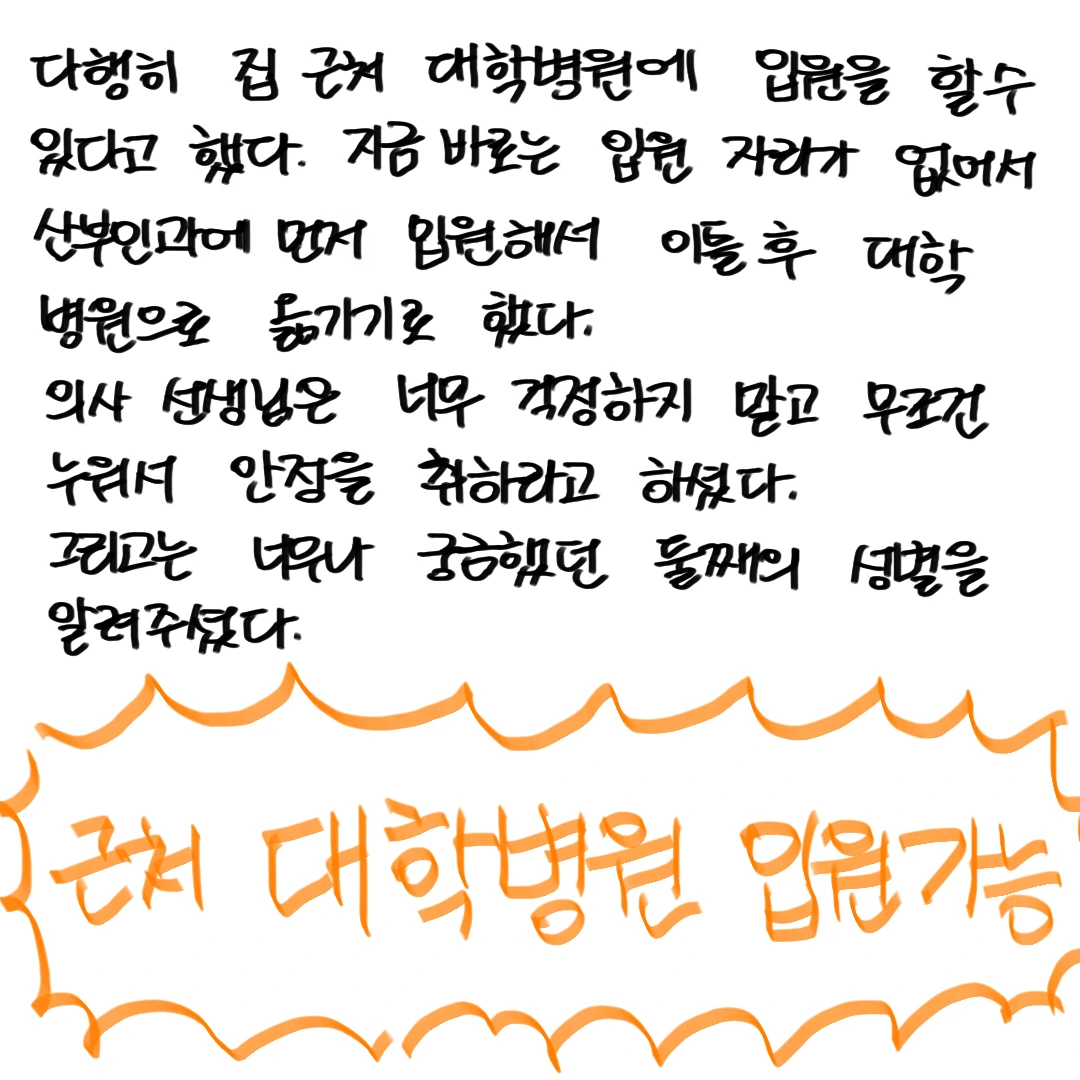 다행히 집 근처 대학병원에 입원을 할 수
있다고 했다. 지금 바로는 입원 자리가 없어서
산부인과에 먼저 입원해서 이틀 후 대학
병원으로 옮기기로 했다.
의사 선생님은 너무 걱정하지 말고 무조건
누워서 안정을 취하라고 하셨다.
그리고는 너무나 궁금했던 둘째의 성별을
알려주셨다.
근처 대학병원 입원가능